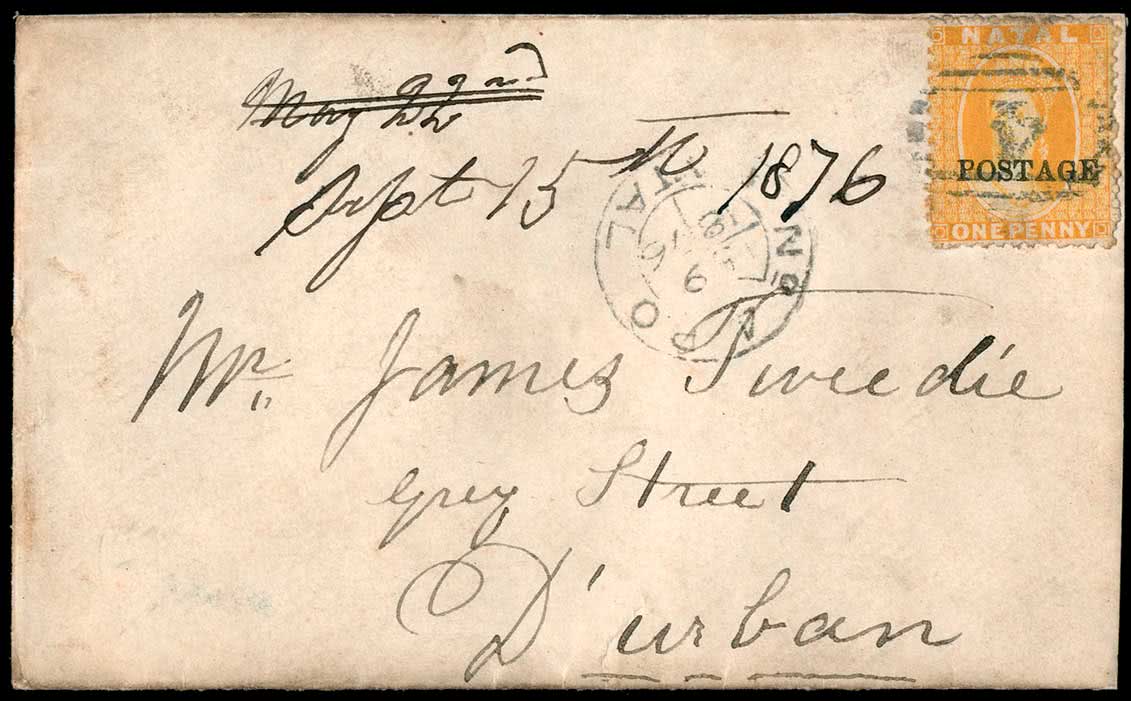 NATAL
POSTAGE
ONE PENNY
May 22nd
Sept 15th 1876
NATAL
Mr James Tweedie
Grey Street
D'urban